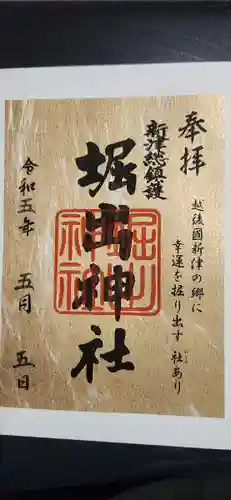 奉拝
越後國新津の郷に
幸運を掘り出す 社あり
新津総鎮護
堀出神社
堀出神社
令和五年 五月 五日